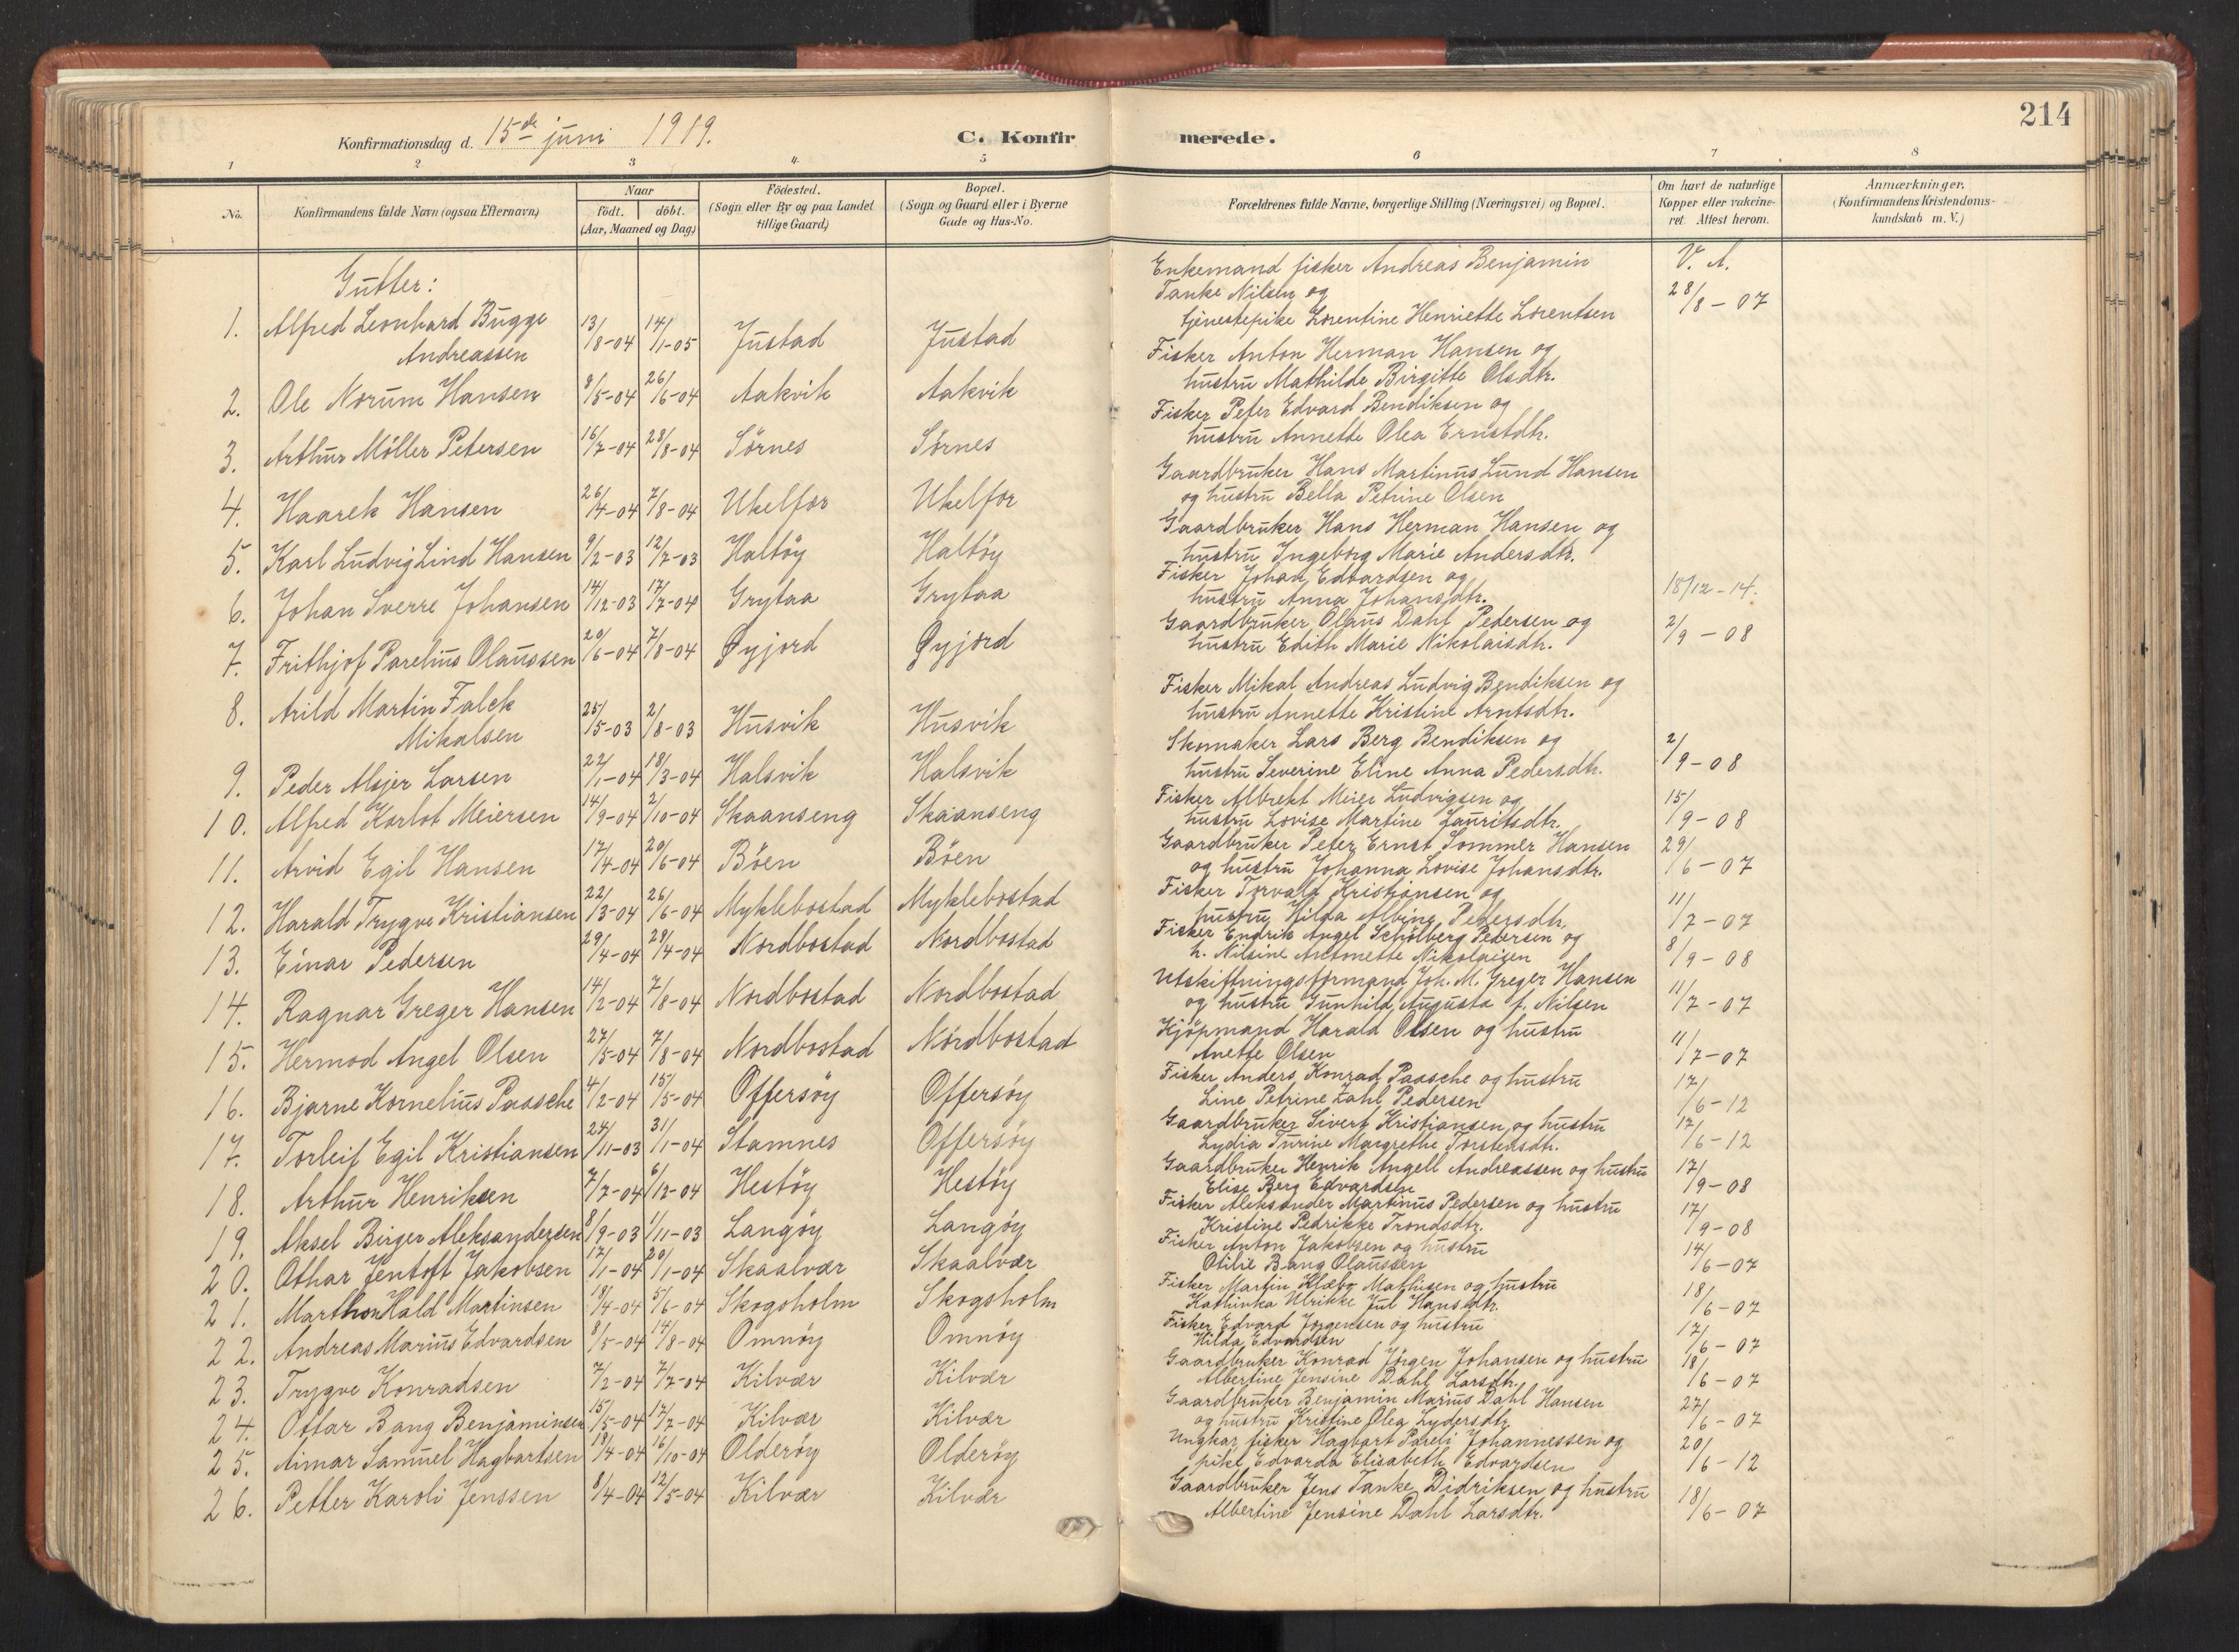 214
Konfirmationsdag d. 15de juni 1919.
C. Konfirmerede.
1 2 3 4 5 6 7 8
No.
Konfirmandens fulde Navn (ogsaa Efternavn)
Naar
födt. döbt.
(Aar, Maaned og Dag)
Födested.
(Sogn eller By og paa Landet
tillige Gaard)
Bopæl.
(Sogn og Gaard eller i Byerne
Gade og Hus-No.
Forældrenes fulde Navne, borgerlige Stilling (Næringsvei) og Bopæl.
Om havt de naturlige
Kopper eller vakcine-
ret. Attest herom.
Anmærkninger.
(Konfirmandens Kristendoms-
kundskab m. V.)
Gutter:
1. Alfred Leonhard Bugge 13/8-04 14/1-05 Justad Justad
Andreassen
Enkemand fisker Andreas Benjamin V. A.
Tanke Nilsen og 28/8-07
tjenestepike Lorentine Henriette Lorentsen
2. Ole Norum Hansen 8/5-04 26/6-04 Aakvik Aakvik
Fisker Anton Herman Hansen og
hustru Mathilde Birgitte Olsdtr.
3. Arthur Möller Petersen 16/7-04 28/8-04 Sörnes Sörnes
Fisker Peter Edvard Bendiksen og
hustru Annette Olea Ernstdtr.
4. Haarek Hansen 26/4-04 7/8-04 Ukelfor Ukelfor
Gaardbruker Hans Martinus Lund Hansen
og hustru Bella Petrine Olsen
5. Karl Ludvig Lind Hansen 9/2-03 12/7-03 Haltöy Haltöy
Gaardbruker Hans Herman Hansen og
hustru Ingeborg Marie Andersdtr.
6. Johan Sverre Johansen 14/12-03 17/7-04 Grytaa Grytaa
Fisker Johan Edvardsen og
hustru Anna Johansdtr. 18/12-14.
7. Frithjof Parelius Olaussen 20/6-04 7/8-04 Øyjord Øyjord
Gaardbruker Olaus Dahl Pedersen og 2/9-08
hustru Edith Marie Nikolaisdtr.
8. Arild Martin Falck 25/5-03 2/8-03 Husvik Husvik
Mikalsen
Fisker Mikal Andreas Ludvig Bendiksen og
hustru Annette Kristine Arntsdtr.
9. Peder Alsjer Larsen 22/1-04 18/3-04 Halsvik Halsvik
Skomaker Lars Berg Bendiksen og 2/9-08
hustru Severine Eline Anna Pedersdtr.
10. Alfred Karlot Meiersen 14/9-04 2/10-04 Skaanseng Skaanseng
Fisker Albrekt Meier Ludvigsen og 15/9-08
hustru Lovise Martine Lauritsdtr.
11. Arvid Egil Hansen 17/4-04 20/6-04 Böen Böen
Gaardbruker Peter Ernst Sommer Hansen 29/6-07
og hustru Johanna Lovise Johansdtr.
12. Harald Trygve Kristiansen 22/3-04 26/6-04 Myklebostad Myklebostad
Fisker Torvald Kristiansen og 11/7-07
hustru Hilda Albine Pedersdtr.
13. Einar Pedersen 29/4-04 29/4-04 Nordbostad Nordbostad
Fisker Endrik Angel Schölberg Pedersen og 8/9-08
h. Nilsine Antonette Nikolaisen
14. Ragnar Greger Hansen 14/2-04 7/8-04 Nordbostad Nordbostad
Utskiftningsformand Joh. M. Greger Hansen 11/7-07
og hustru Gunhild Augusta f. Nilsen
15. Hermod Angel Olsen 27/5-04 7/8-04 Nordbostad Nordbostad
Kjöpmand Harald Olsen og hustru 11/7-07
Anette Olsen
16. Bjarne Kornelius Paasche 4/2-04 15/5-04 Offersöy Offersöy
Fisker Anders Konrad Paasche og hustru 17/6-12
Line Petrine Zahl Pedersen
17. Torleif Egil Kristiansen 24/11-03 31/1-04 Stamnes Offersöy
Gaardbruker Sivert Kristiansen og hustru 17/6-12
Lydia Turine Margrethe Torstensdtr.
18. Arthur Henriksen 7/7-04 6/12-04 Hestöy Hestöy
Gaardbruker Henrik Angell Andreassen og hustru 17/9-08
Elise Berg Edvardsen
19. Aksel Birger Aleksandersen 8/9-03 1/11-03 Langöy Langöy
Fisker Aleksander Martinus Pedersen og hustru 17/9-08
Kristine Pedrikke Trondsdtr.
20. Othar Jentoft Jakobsen 17/1-04 20/1-04 Skaalvær Skaalvær
Fisker Anton Jakobsen og hustru 14/6-07
Otilie Bang Olaussen
21. Marthon Hald Martinsen 18/4-04 5/6-04 Skogsholm Skogsholm
Fisker Martin Klæbo Mathisen og hustru 18/6-07
Kathinka Ulrikke Jul Hansdtr.
22. Andreas Marius Edvardsen 8/5-04 14/8-04 Omnöy Omnöy
Fisker Edvard Jörgensen og hustru 17/6-07
Hilda Edvardsen
23. Trygve Konradsen 7/2-04 7/7-04 Kilvær Kilvær
Gaardbruker Konrad Jörgen Johansen og hustru 18/6-07
Albertine Jensine Dahl Larsdtr.
24. Ottar Bang Benjaminsen 15/5-04 17/7-04 Kilvær Kilvær
Gaardbruker Benjamin Marius Dahl Hansen 27/6-07
og hustru Kristine Olea Lydersdtr.
25. Aimar Samuel Hagbartsen 18/4-04 16/10-04 Olderöy Olderöy
Ungkar fisker Hagbart Pareli Johannessen og 20/6-12
pike Edvarda Elisabeth Edvardsen
26. Petter Karoli Jenssen 8/4-04 12/5-04 Kilvær Kilvær
Gaardbruker Jens Tanke Didriksen og hustru 18/6-07
Albertine Jensine Dahl Larsdtr.